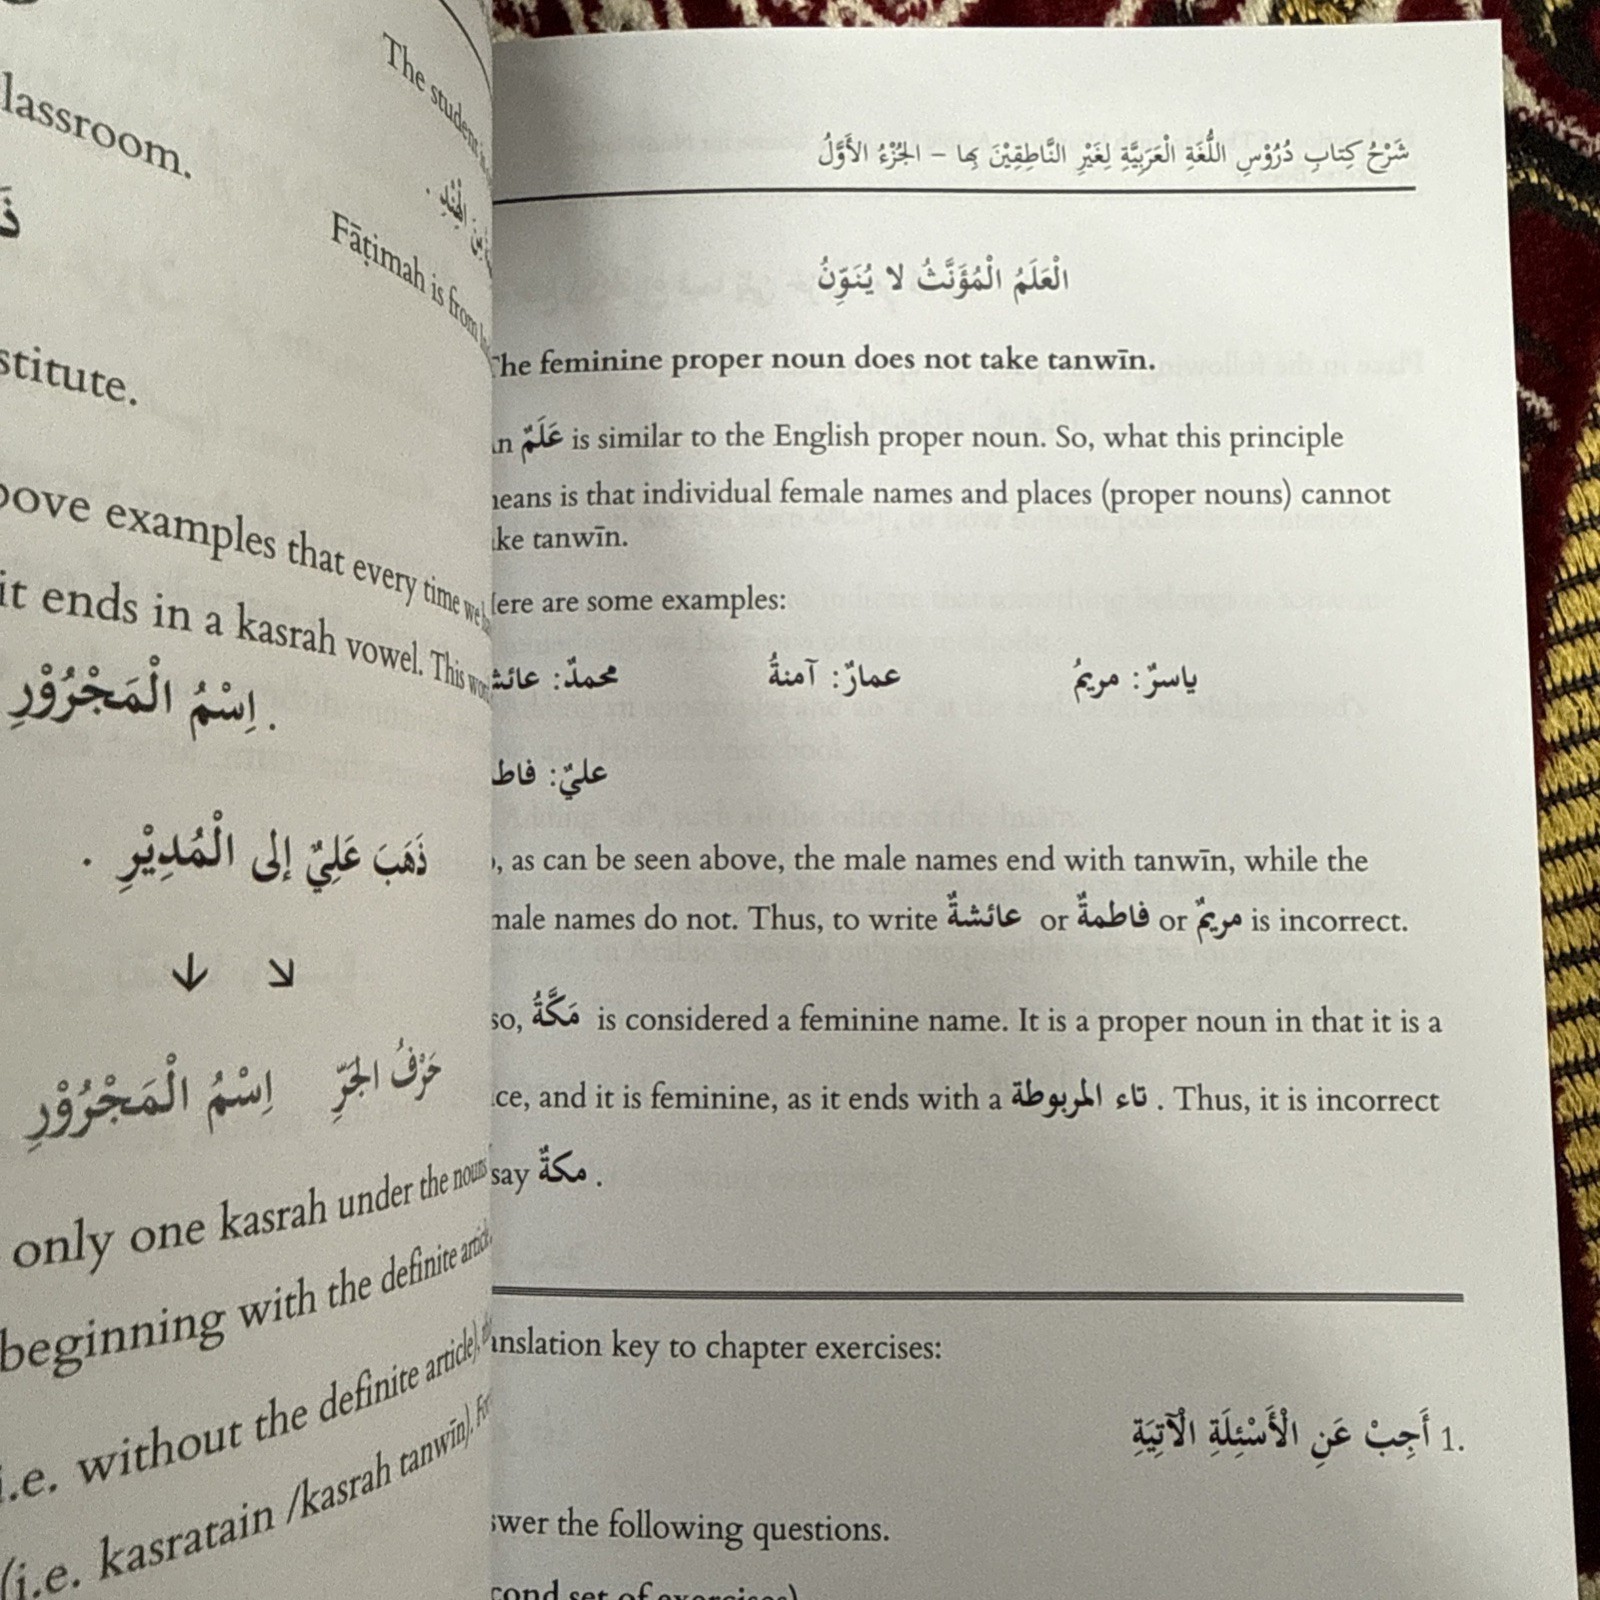 lassroom.
The student
الْهِنْدِ .
Fāṭimah is from
stitute.
bove examples that every time we
it ends in a kasrah vowel. This
اِسْمُ الْمَجْرُوْرِ .
ذَهَبَ عَلِيٌّ إلى الْمُدِيْرِ .
↓ ↘
حَرْفُ الجَرِّ اِسْمُ الْمَجْرُوْرِ
only one kasrah under the nouns
beginning with the definite article,
i.e. without the definite article),
(i.e. kasratain /kasrah tanwīn). For
شَرْحُ كِتابِ دُرُوْسِ اللُّغَةِ الْعَرَبِيَّةِ لِغَيْرِ النَّاطِقِيْنَ بِها – الجُزْءُ الأَوَّلُ
الْعَلَمُ الْمُؤَنَّثُ لا يُنَوِّنُ
The feminine proper noun does not take tanwīn.
An عَلَمٌ is similar to the English proper noun. So, what this principle
means is that individual female names and places (proper nouns) cannot
ke tanwīn.
Here are some examples:
محمدٌ: عائش عمارٌ: آمنةُ ياسرٌ: مريمُ
عليٌ: فاط
, as can be seen above, the male names end with tanwīn, while the
male names do not. Thus, to write عائشةٌ or فاطمةٌ or مريمٌ is incorrect.
so, مَكَّةُ is considered a feminine name. It is a proper noun in that it is a
ce, and it is feminine, as it ends with a تاء المربوطة . Thus, it is incorrect
say مكةٌ .
anslation key to chapter exercises:
1. أَجِبْ عَنِ الْأَسْئِلَةِ الْآتِيَةِ
swer the following questions.
cond set of exercises)